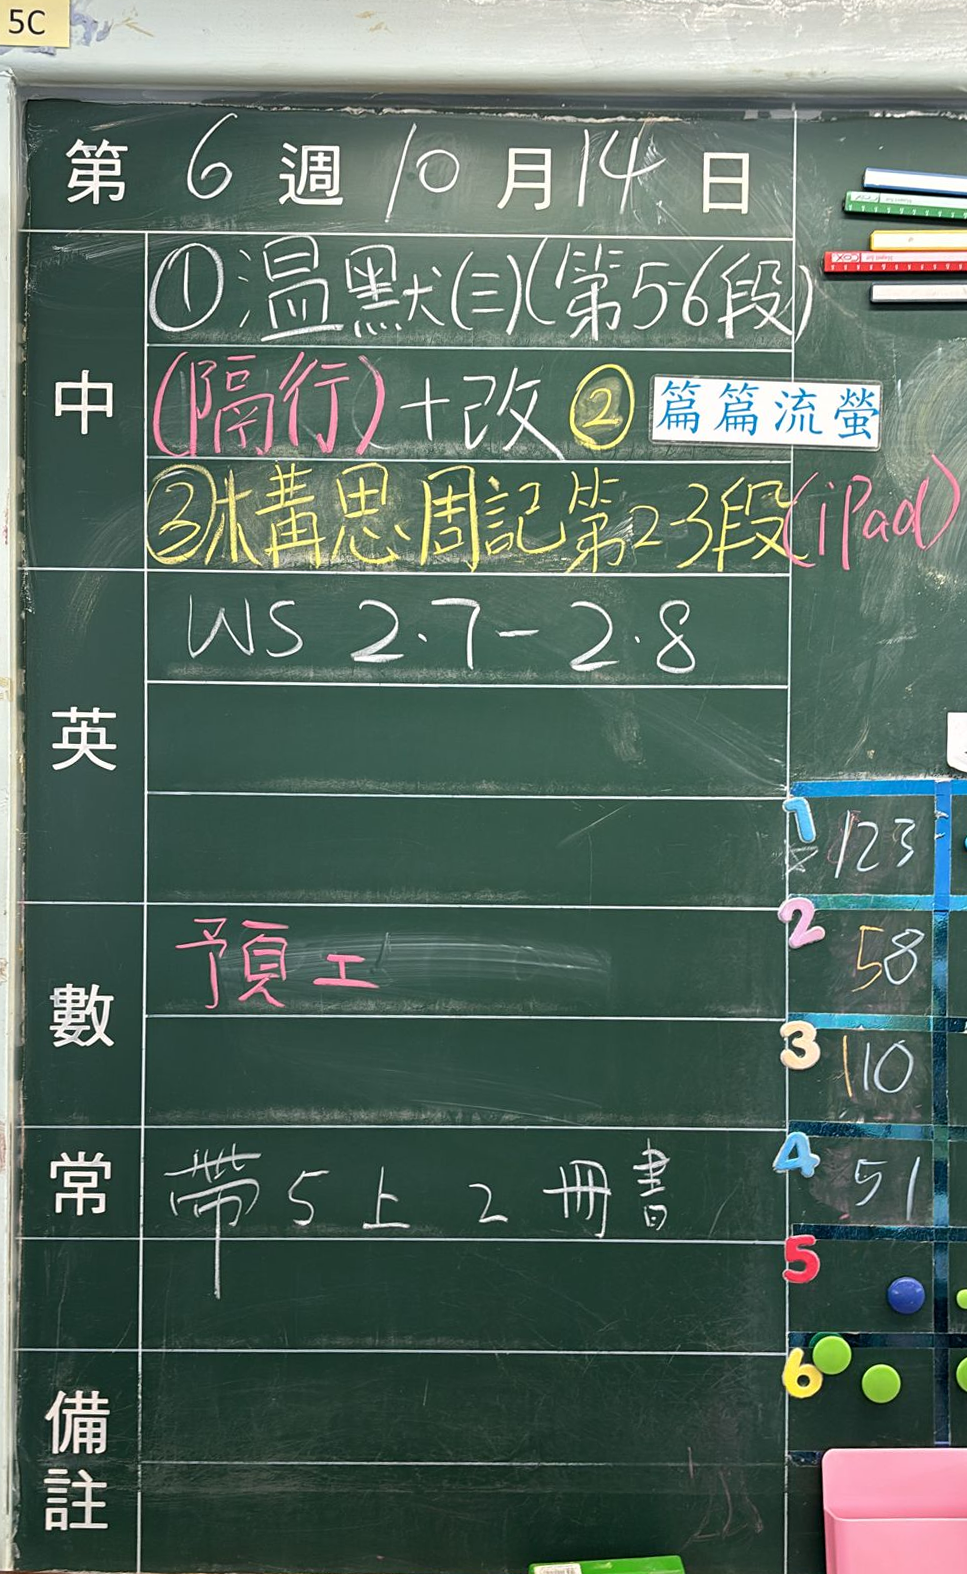 5C
第 6 週 10 月 14 日
中
①溫默(三)(第5-6段)
(隔行)+改 ② 篇篇流螢
③構思周記第2-3段(iPad)
英
WS 2.7-2.8
數
預工
常
帶5上 2 冊書
備註
1 123
2 58
3 110
4 51
5
6